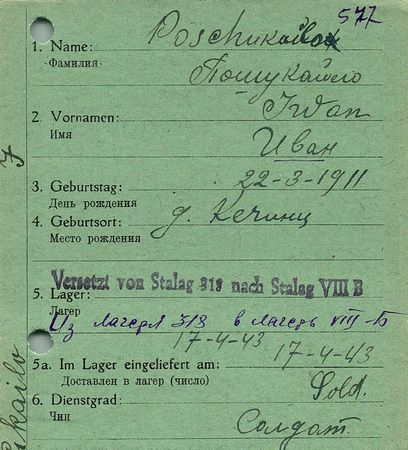 577
1. Name: Poschukailo
Фамилия Пошукайло
2. Vornamen: Iwan
Имя Иван
3. Geburtstag: 22-3-1911
День рождения
4. Geburtsort: д. Кечинц
Место рождения
Versetzt von Stalag 318 nach Stalag VIII B
5. Lager:
Лагер
Из лагеря 318 в лагерь VIII-Б
17-4-43
5a. Im Lager eingeliefert am: 17-4-43
Доставлен в лагер (число)
6. Dienstgrad: Sold.
Чин Солдат.